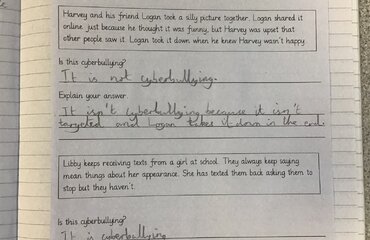 Harvey and his friend Logan took a silly picture together. Logan shared it
online just because he thought it was funny, but Harvey was upset that
other people saw it. Logan took it down when he knew Harvey wasn't happy.
Is this cyberbullying?
It is not cyberbullying.
Explain your answer.
It isn't cyberbullying because it isn't
targeted and Logan takes it down in the end.
Libby keeps receiving texts from a girl at school. They always keep saying
mean things about her appearance. She has texted them back asking them to
stop but they haven't.
Is this cyberbullying?
It is cyberbullying